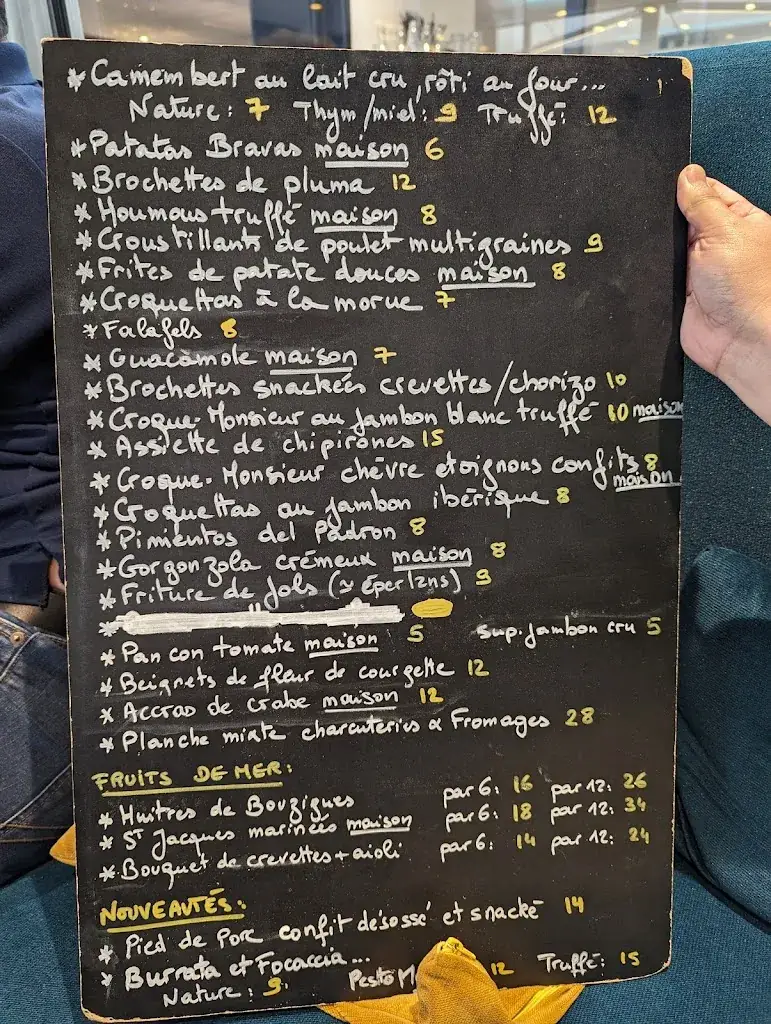 * Camembert au lait cru, rôti au four...
Nature: 7 Thym/miel: 9 Truffé: 12
* Patatas Bravas maison 6
* Brochettes de pluma 12
* Houmous truffé maison 8
* Croustillants de poulet multigraines 9
* Frites de patate douces maison 8
* Croquettas à la morue 7
* Falafels 8
* Guacamole maison 7
* Brochettes snackées crevettes/chorizo 10
* Croque-Monsieur au jambon blanc truffé 10 maison
* Assiette de chipirones 15
* Croque-Monsieur chèvre et oignons confits 8 maison
* Croquettas au jambon ibérique 8
* Pimientos del Padron 8
* Gorgonzola crémeux maison 8
* Friture de Jols (≃ éperlans) 9
* Pan con tomate maison 5 sup. jambon cru 5
* Beignets de fleur de courgette 12
* Accras de crabe maison 12
* Planche mixte charcuteries & Fromages 28
FRUITS DE MER:
* Huîtres de Bouzigues par 6: 16 par 12: 26
* St Jacques marinées maison par 6: 18 par 12: 34
* Bouquet de crevettes + aïoli par 6: 14 par 12: 24
NOUVEAUTÉS:
* Pied de Porc confit désossé et snacké 14
* Burrata et Focaccia...
Nature: 9 Pesto M 12 Truffe: 15